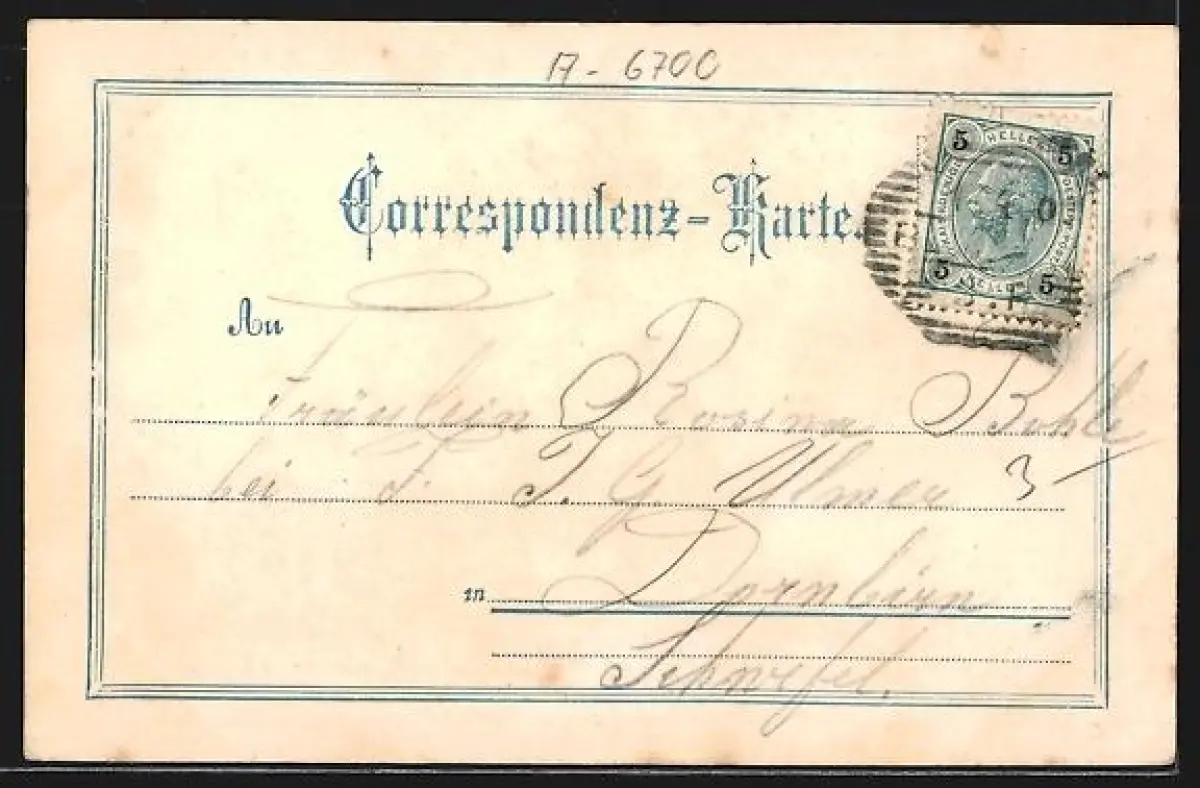 A - 6700
Correspondenz-Karte.
5 HELLER 5
5 HELLER 5
An
Fräulein Rosina Bohle
bei J. G. Ulmer 3-
in Dornbirn
Schwefel.